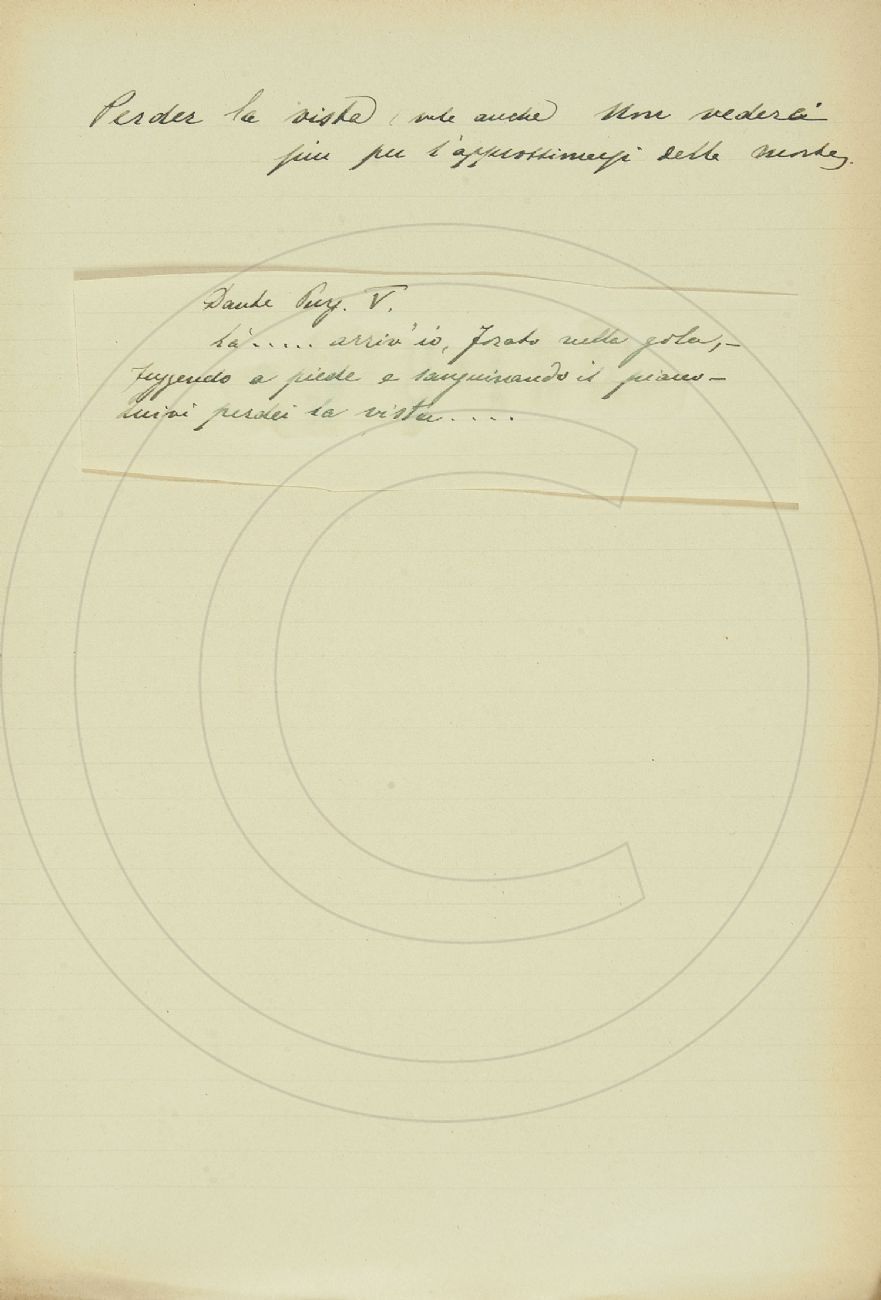 Perder la vista, vale anche Non vederci
più per l'approssimarsi della morte.
Dante Purg. V.
Là..... arriv'io, forato nella gola,-
fuggendo a piede e sanguinando il piano-
Quivi perdei la vista....